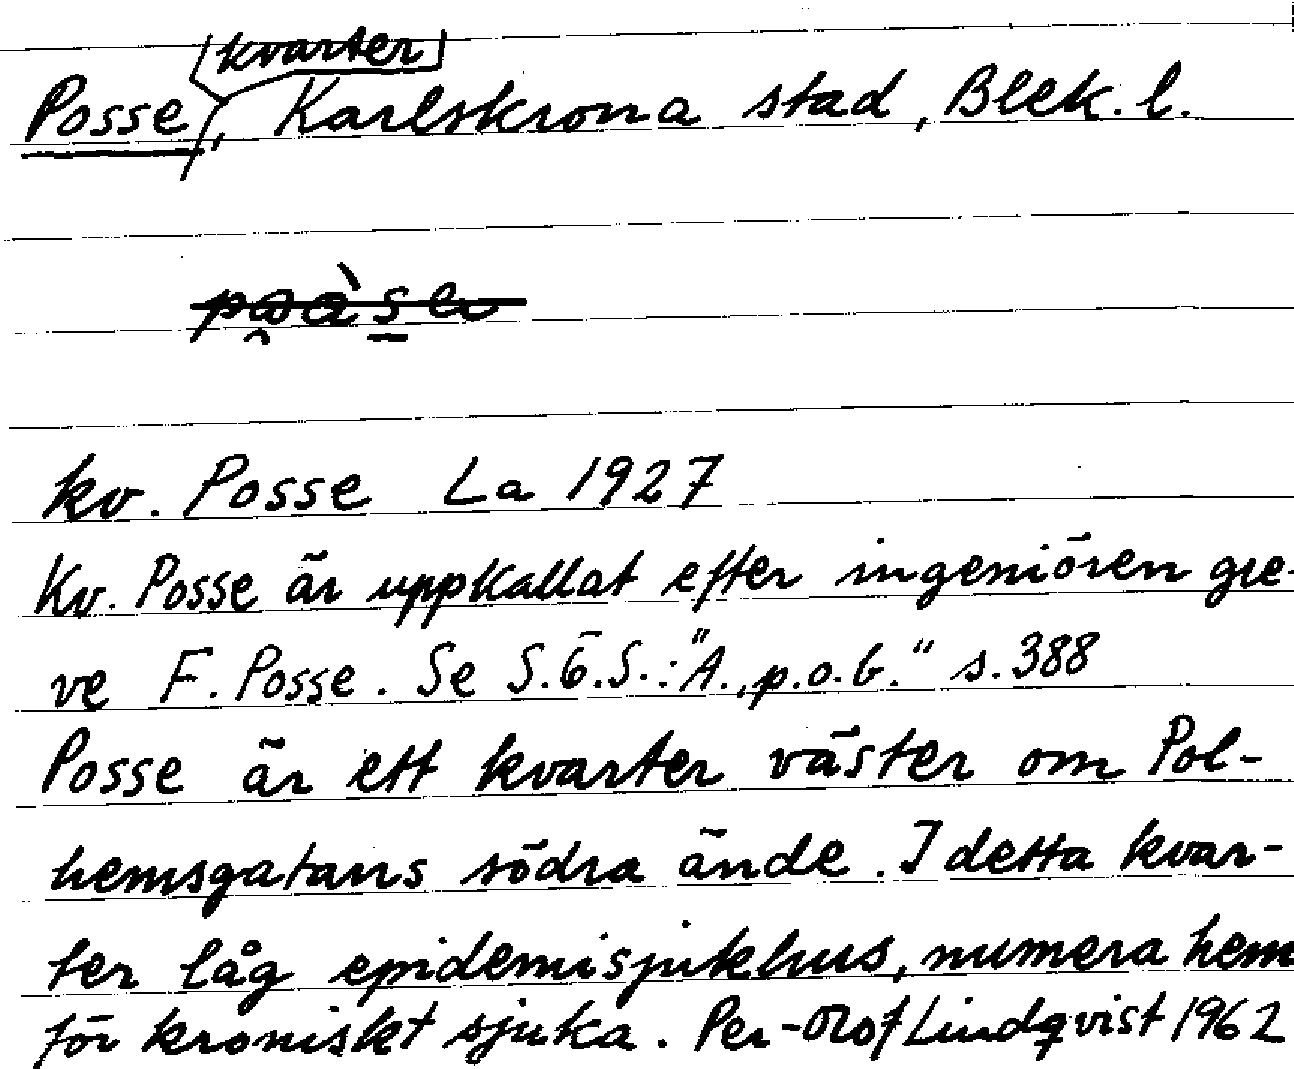 kvarter
Posse, Karlskrona stad, Blek. l.
kv. Posse La 1927
Kv. Posse är uppkallat efter ingeniören gre-
ve F. Posse. Se S.Ö.S.: "A., p.o.b." s. 388
Posse är ett kvarter väster om Pol-
hemsgatans södra ände. I detta kvar-
ter låg epidemisjukhus, numera hem
för kroniskt sjuka. Per-Olof Lindqvist 1962